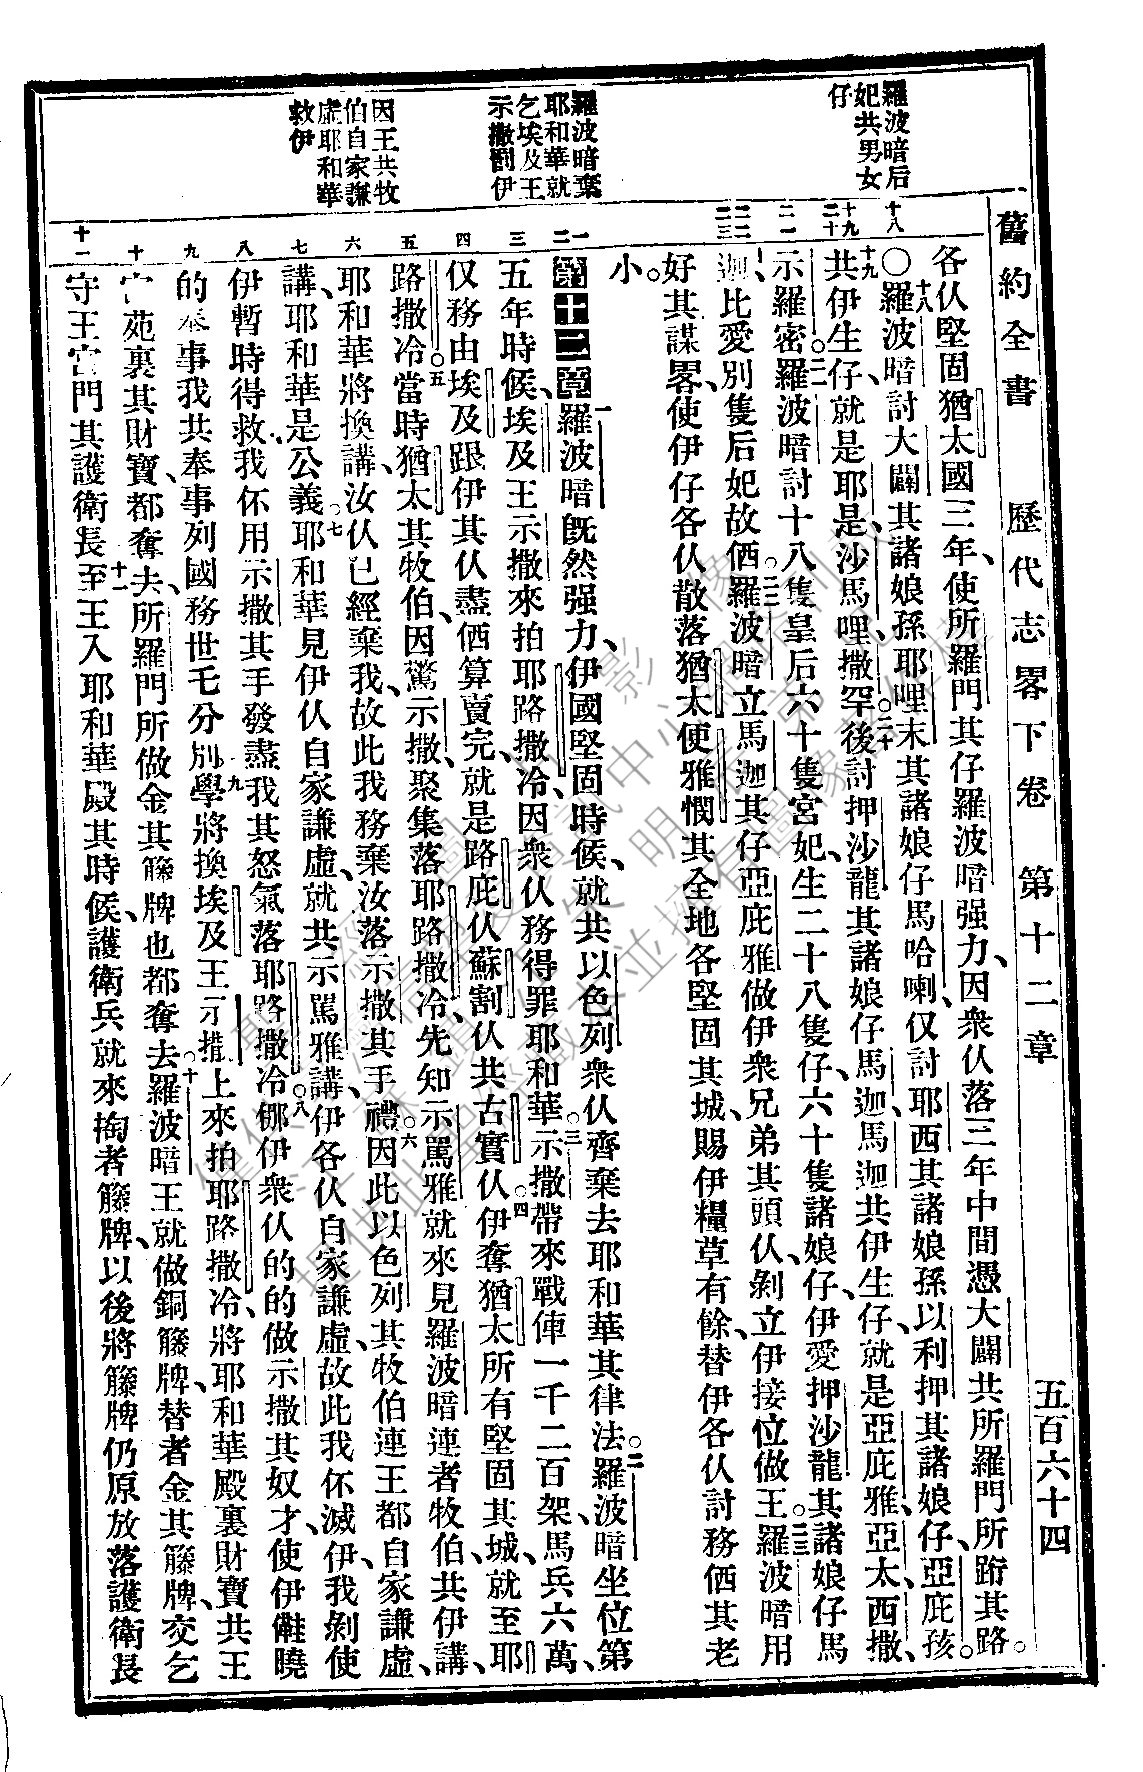 舊約全書 歷代志畧下卷 第十二章 五百六十四
羅波暗后
妃共男女
仔
羅波暗棄
耶和華就
乞埃及王
示撒劉伊
因王共牧
伯自家謙
虛耶和華
救伊
十八
十九
二十
二一
二二
二三
一
二
三
四
五
六
七
八
九
十
十一
各仈堅固猶太國三年、使所羅門其仔羅波暗强力、因衆仈落三年中間憑大闢共所羅門所跲其路。
○十八羅波暗討大闢其諸娘孫耶哩末其諸娘仔馬哈喇、仅討耶西其諸娘孫以利押其諸娘仔、亞庇孩。
十九共伊生仔、就是耶是、沙馬哩、撒罕。二十後討押沙龍其諸娘仔馬迦、馬迦共伊生仔、就是亞庇雅、亞太、西撒、
示羅密。二一羅波暗討十八隻皇后六十隻宮妃、生二十八隻仔、六十隻諸娘仔、伊愛押沙龍其諸娘仔馬
迦、比愛別隻后妃故。二二羅波暗立馬迦其仔亞庇雅做伊衆兄弟其頭仈、剝立伊接位做王。二三羅波暗用
好其謀畧、使伊仔各仈散落猶太、便雅憫其全地各堅固其城、賜伊糧草有餘、替伊各仈討務其老
小。
第十二章 一羅波暗旣然强力、伊國堅固時候、就共以色列衆仈齊棄去耶和華其律法。二羅波暗坐位第
五年時候、埃及王示撒來拍耶路撒冷、因衆仈務得罪耶和華。三示撒帶來戰俥一千二百架、馬兵六萬、
仅務由埃及跟伊其仈、盡算賣完、就是路庇仈蘇割仈共古實仈。四伊奪猶太所有堅固其城、就至耶
路撒冷。五當時猶太其牧伯、因驚示撒、聚集落耶路撒冷、先知示罵雅就來見羅波暗連者牧伯、共伊講、
耶和華將換講、汝仈已經棄我、故此我務棄汝落示撒其手禮。六因此以色列其牧伯連王都自家謙虛、
講、耶和華是公義。七耶和華見伊仈自家謙虛、就共示罵雅講、伊各仈自家謙虛、故此我伓滅伊、我剝使
伊暫時得救、我伓用示撒其手發盡我其怒氣落耶路撒冷。八伊衆仈的的做示撒其奴才、使伊曉
的奉事我共奉事列國務世乇分別。九學將換埃及王示撒上來拍耶路撒冷、將耶和華殿裏財寶共王
宮苑裏其財寶、都奪去、所羅門所做金其籐牌也都奪去。十羅波暗王就做銅籐牌、替者金其籐牌、交乞
守王宮門其護衛長。十一至王入耶和華殿其時候、護衛兵就來掏者籐牌、以後將籐牌仍原放落護衛長